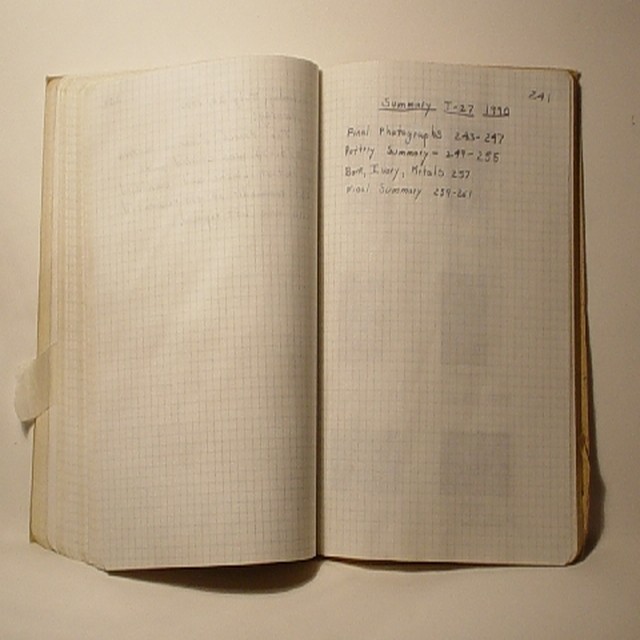 241
Summary T-27 1990
Final Photographs 243-247
Pottery Summary = 249-255
Bone, Ivory, Metals 257
Final Summary 259-261